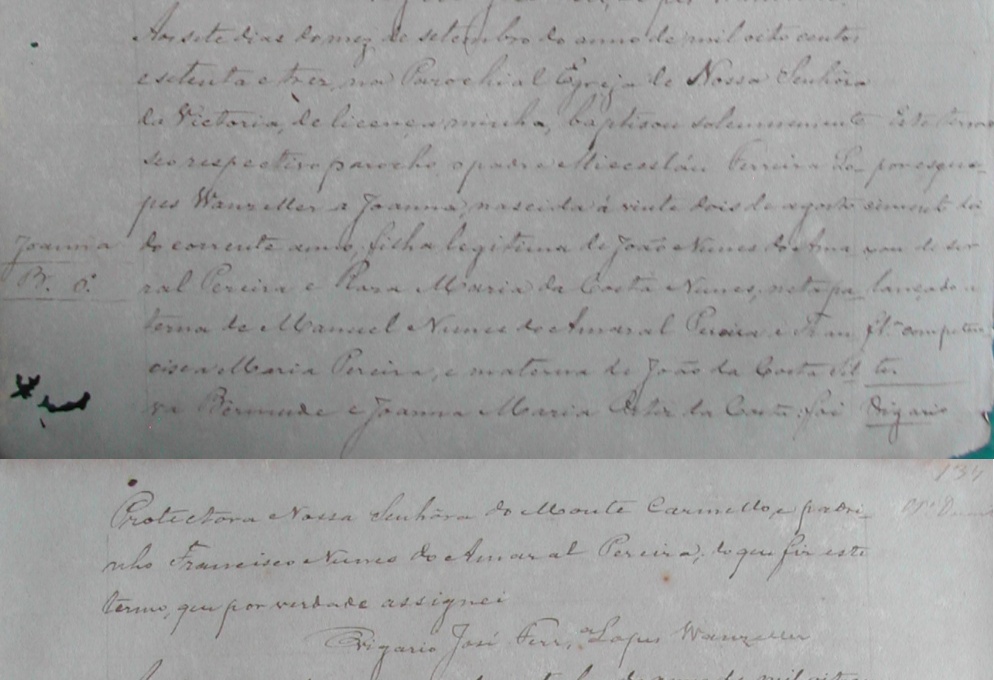 Aos sete dias do mez de setembro do anno de mil oito centos
e setenta e trez, na Parochial Egreja de Nossa Senhóra
da Victoria, de licença minha, baptisou solemnemente
seo respectivo parocho, o padre Miecesláu Ferreira Lo-
pes Wanzeller a Joanna, nascida á vinte dois de agosto
do corrente anno, filha legitima de João Nunes do Ama
ral Pereira e Roza Maria da Costa Nunes, neta pa
terna de Manoel Nunes do Amaral Pereira e Fran
cisca Maria Pereira, e materna de João da Costa Sil
va Bermude e Joanna Maria da Costa: foi
Joanna
B. 6.
Este termo
por esque-
cimento dei
xou de ser
lançado a
fl.ª competen
te.
Vigario
134
Protectora Nossa Senhóra do Monte Carmello, e padri-
nho Francisco Nunes do Amaral Pereira; do que fiz este
termo, que por verdade assignei
Vigario José Ferr.ª Lopes Wanzeller